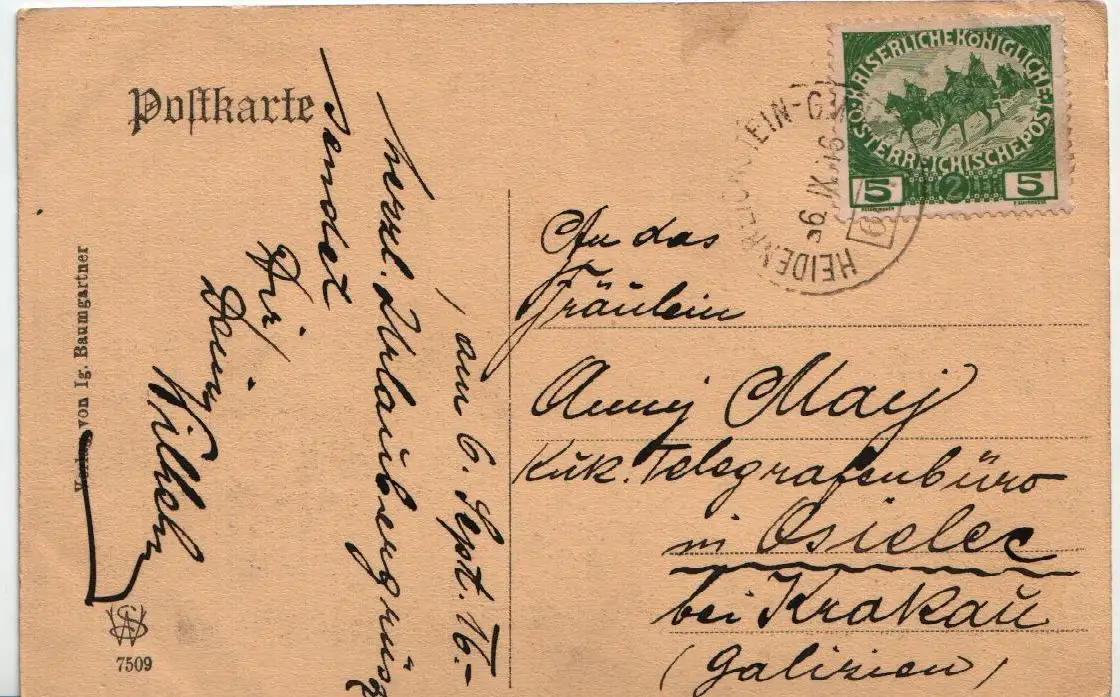 Postkarte
KAISERLICHEKÖNIGLICHE
ÖSTERREICHISCHEPOST
5 2 5
HEIDENREICHSTEIN-G
6 IX 16
Verlag von Ig. Baumgartner
7509
, am 6. Sept. 16.-
Herzl. Urlaubsergrüsse
sendet
Dir
Dein
Wilhelm
An das
Fräulein
Anny May
Kuk. Telegrafenbüro
in Osielec
bei Krakau
(Galizien)